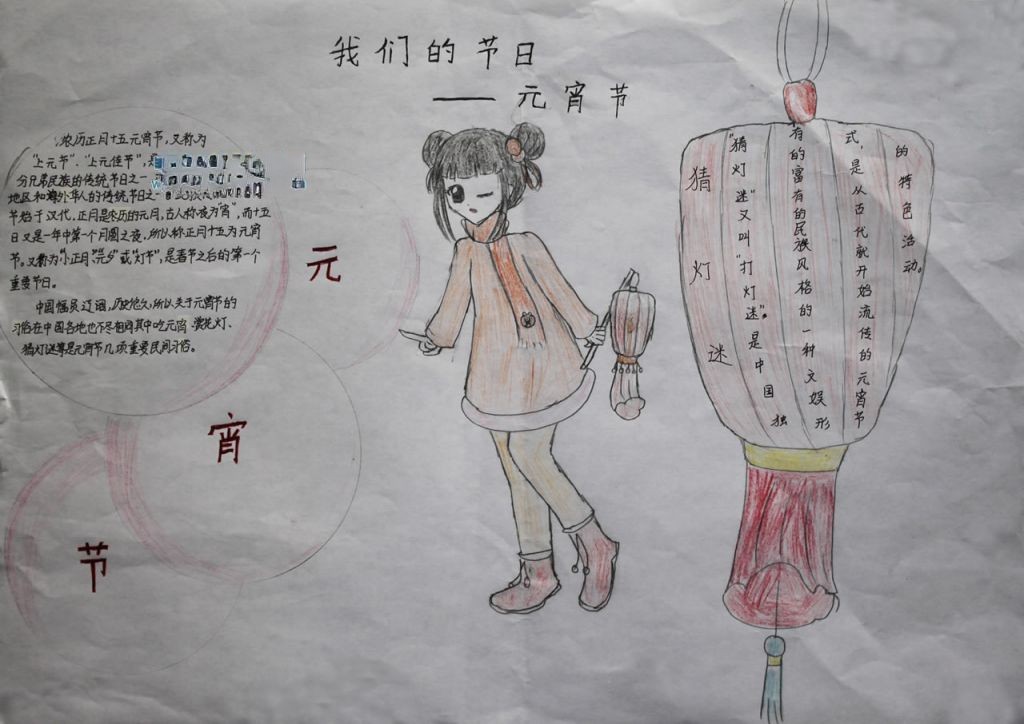 我们的节日
——元宵节
农历正月十五元宵节，又称为
"上元节"、"上元佳节"，是
分兄弟民族的传统节日之一
地区和海外华人的传统节日之一
节始于汉代，正月是农历的元月，古人称夜为"宵"，而十五
日又是一年中第一个月圆之夜，所以称正月十五为元宵
节。又称为"小正月""元夕"或"灯节"，是春节之后的第一个
重要节日。
中国幅员辽阔，历史悠久，所以关于元宵节的
习俗在中国各地也不尽相同其中吃元宵、赏花灯、
猜灯谜等是元宵节几项重要民间习俗。
元
宵
节
猜灯迷
"猜灯迷"又叫"打灯迷"。是中国独
有的富有的民族风格的一种文娱形
式，是从古代就开始流传的元宵节
的特色活动。